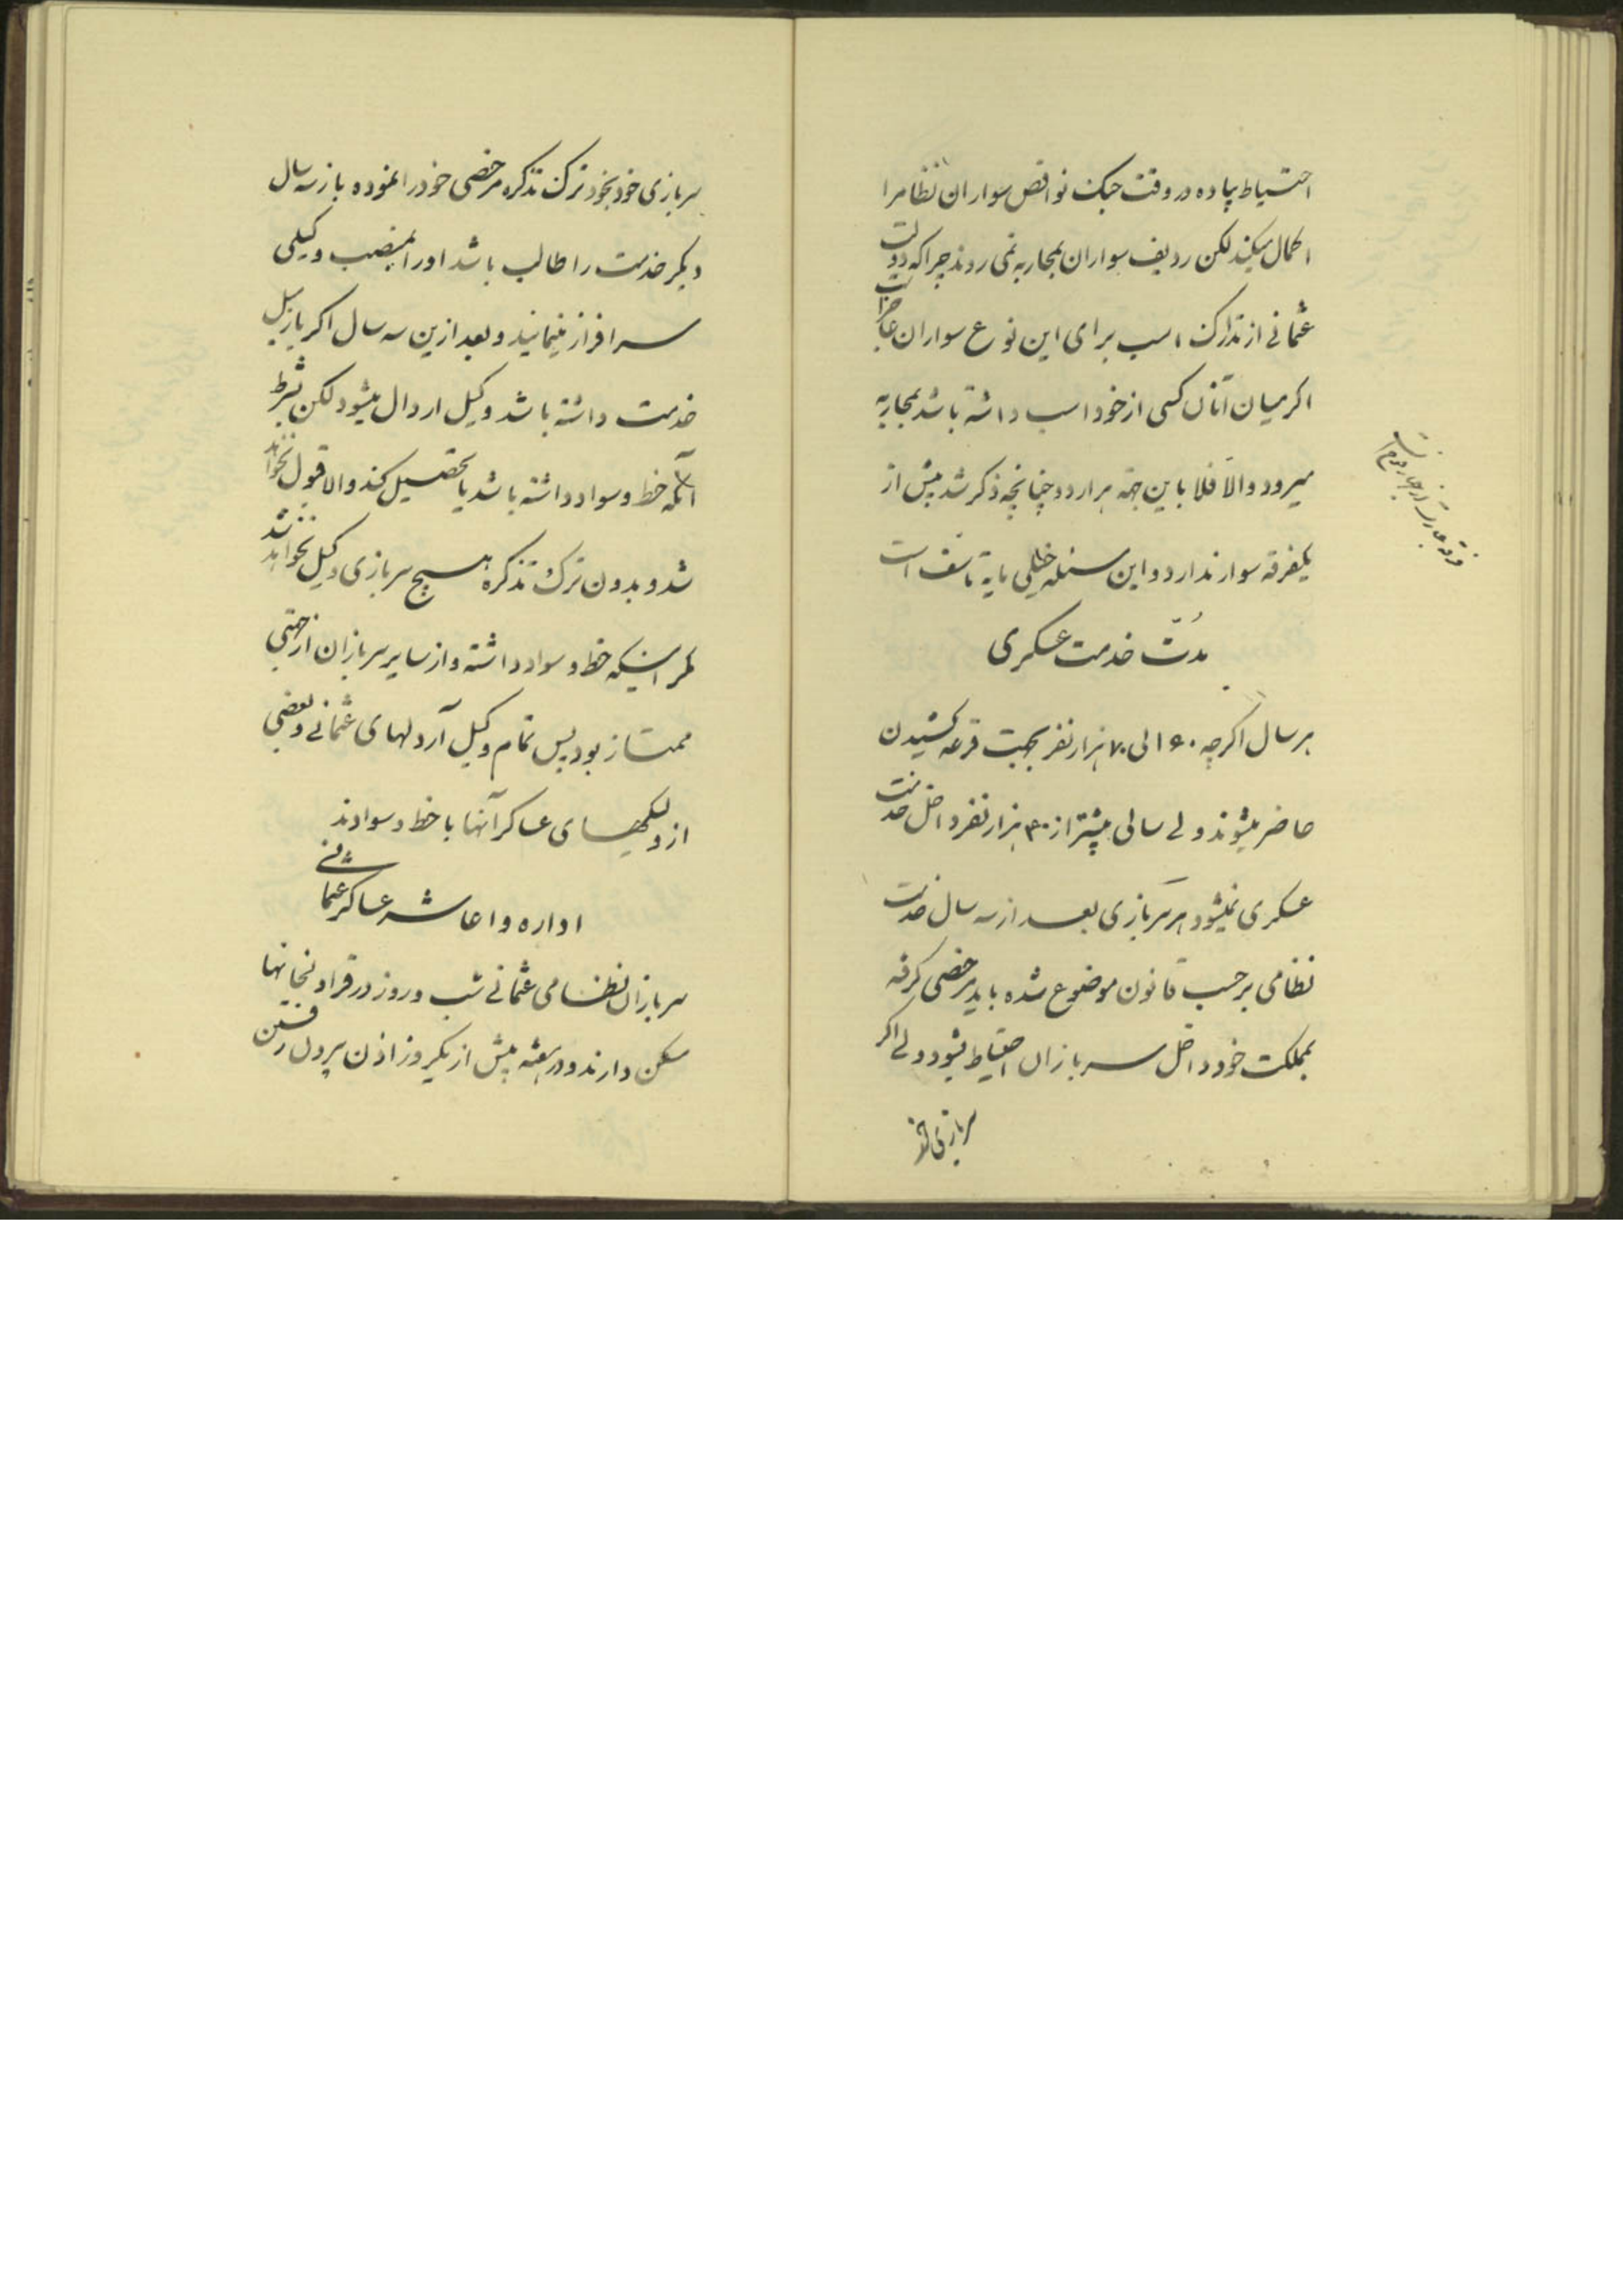 احتیاط پیاده در وقت جنک نواقص سواران نظامرا
اکمال میکند لکن ردیف سواران بمحاربه نمی روند چراکه دولت
عثمانی از تدارک اسب برای این نوع سواران عاجز است
اکر میان آنان کسی از خود اسب داشته باشد بمحاربه
میرود والا فلا باین جهة هر اردو چنانچه ذکر شد بیش از
یکفرقه سوار ندارد و این مسئله خیلی مایۀ تاسف است
فرقه عبارت از چهار فوج است
مدّت خدمت عسکری
هر سال اکرچه ۶۰ الی ۷۰ هزار نفر بجهت قرعه کشیدن
حاضر میشوند ولی سالی بیشتر از ۴۰ هزار نفر داخل خدمت
عسکری نمیشود هر سربازی بعد از سه سال خدمت
نظامی برحسب قانون موضوع شده باید مرخصی کرفته
بمملکت خود داخل سربازان احتیاط بشود ولی اکر
سربازی خود
سربازی خود بخود ترک تذکره مرخصی خود را نموده باز سه سال
دیکر خدمت را طالب باشد او را بمنصب وکیلی
سرافراز مینمایند و بعد ازین سه سال اکر باز میل
خدمت داشته باشد وکیل اردال میشود لکن بشرط
آنکه خط و سواد داشته باشد یا تحصیل کند والا قبول نخواهد
شد و بدون ترک تذکره هیچ سربازی وکیل نخواهد شد
مکر اینکه خط و سواد داشته و از سایر سربازان از جهتی
ممتاز بود پس تمام وکیل آردلهای عثمانی و بعضی
از وکیلهای عساکر آنها با خط و سوادند
اداره و اعاشه عساکر عثمانی
سربازان نظامی عثمانی شب و روز در قراولخانها
سکن دارند و در هفته بیش از یکروز اذن بیرون رفتن